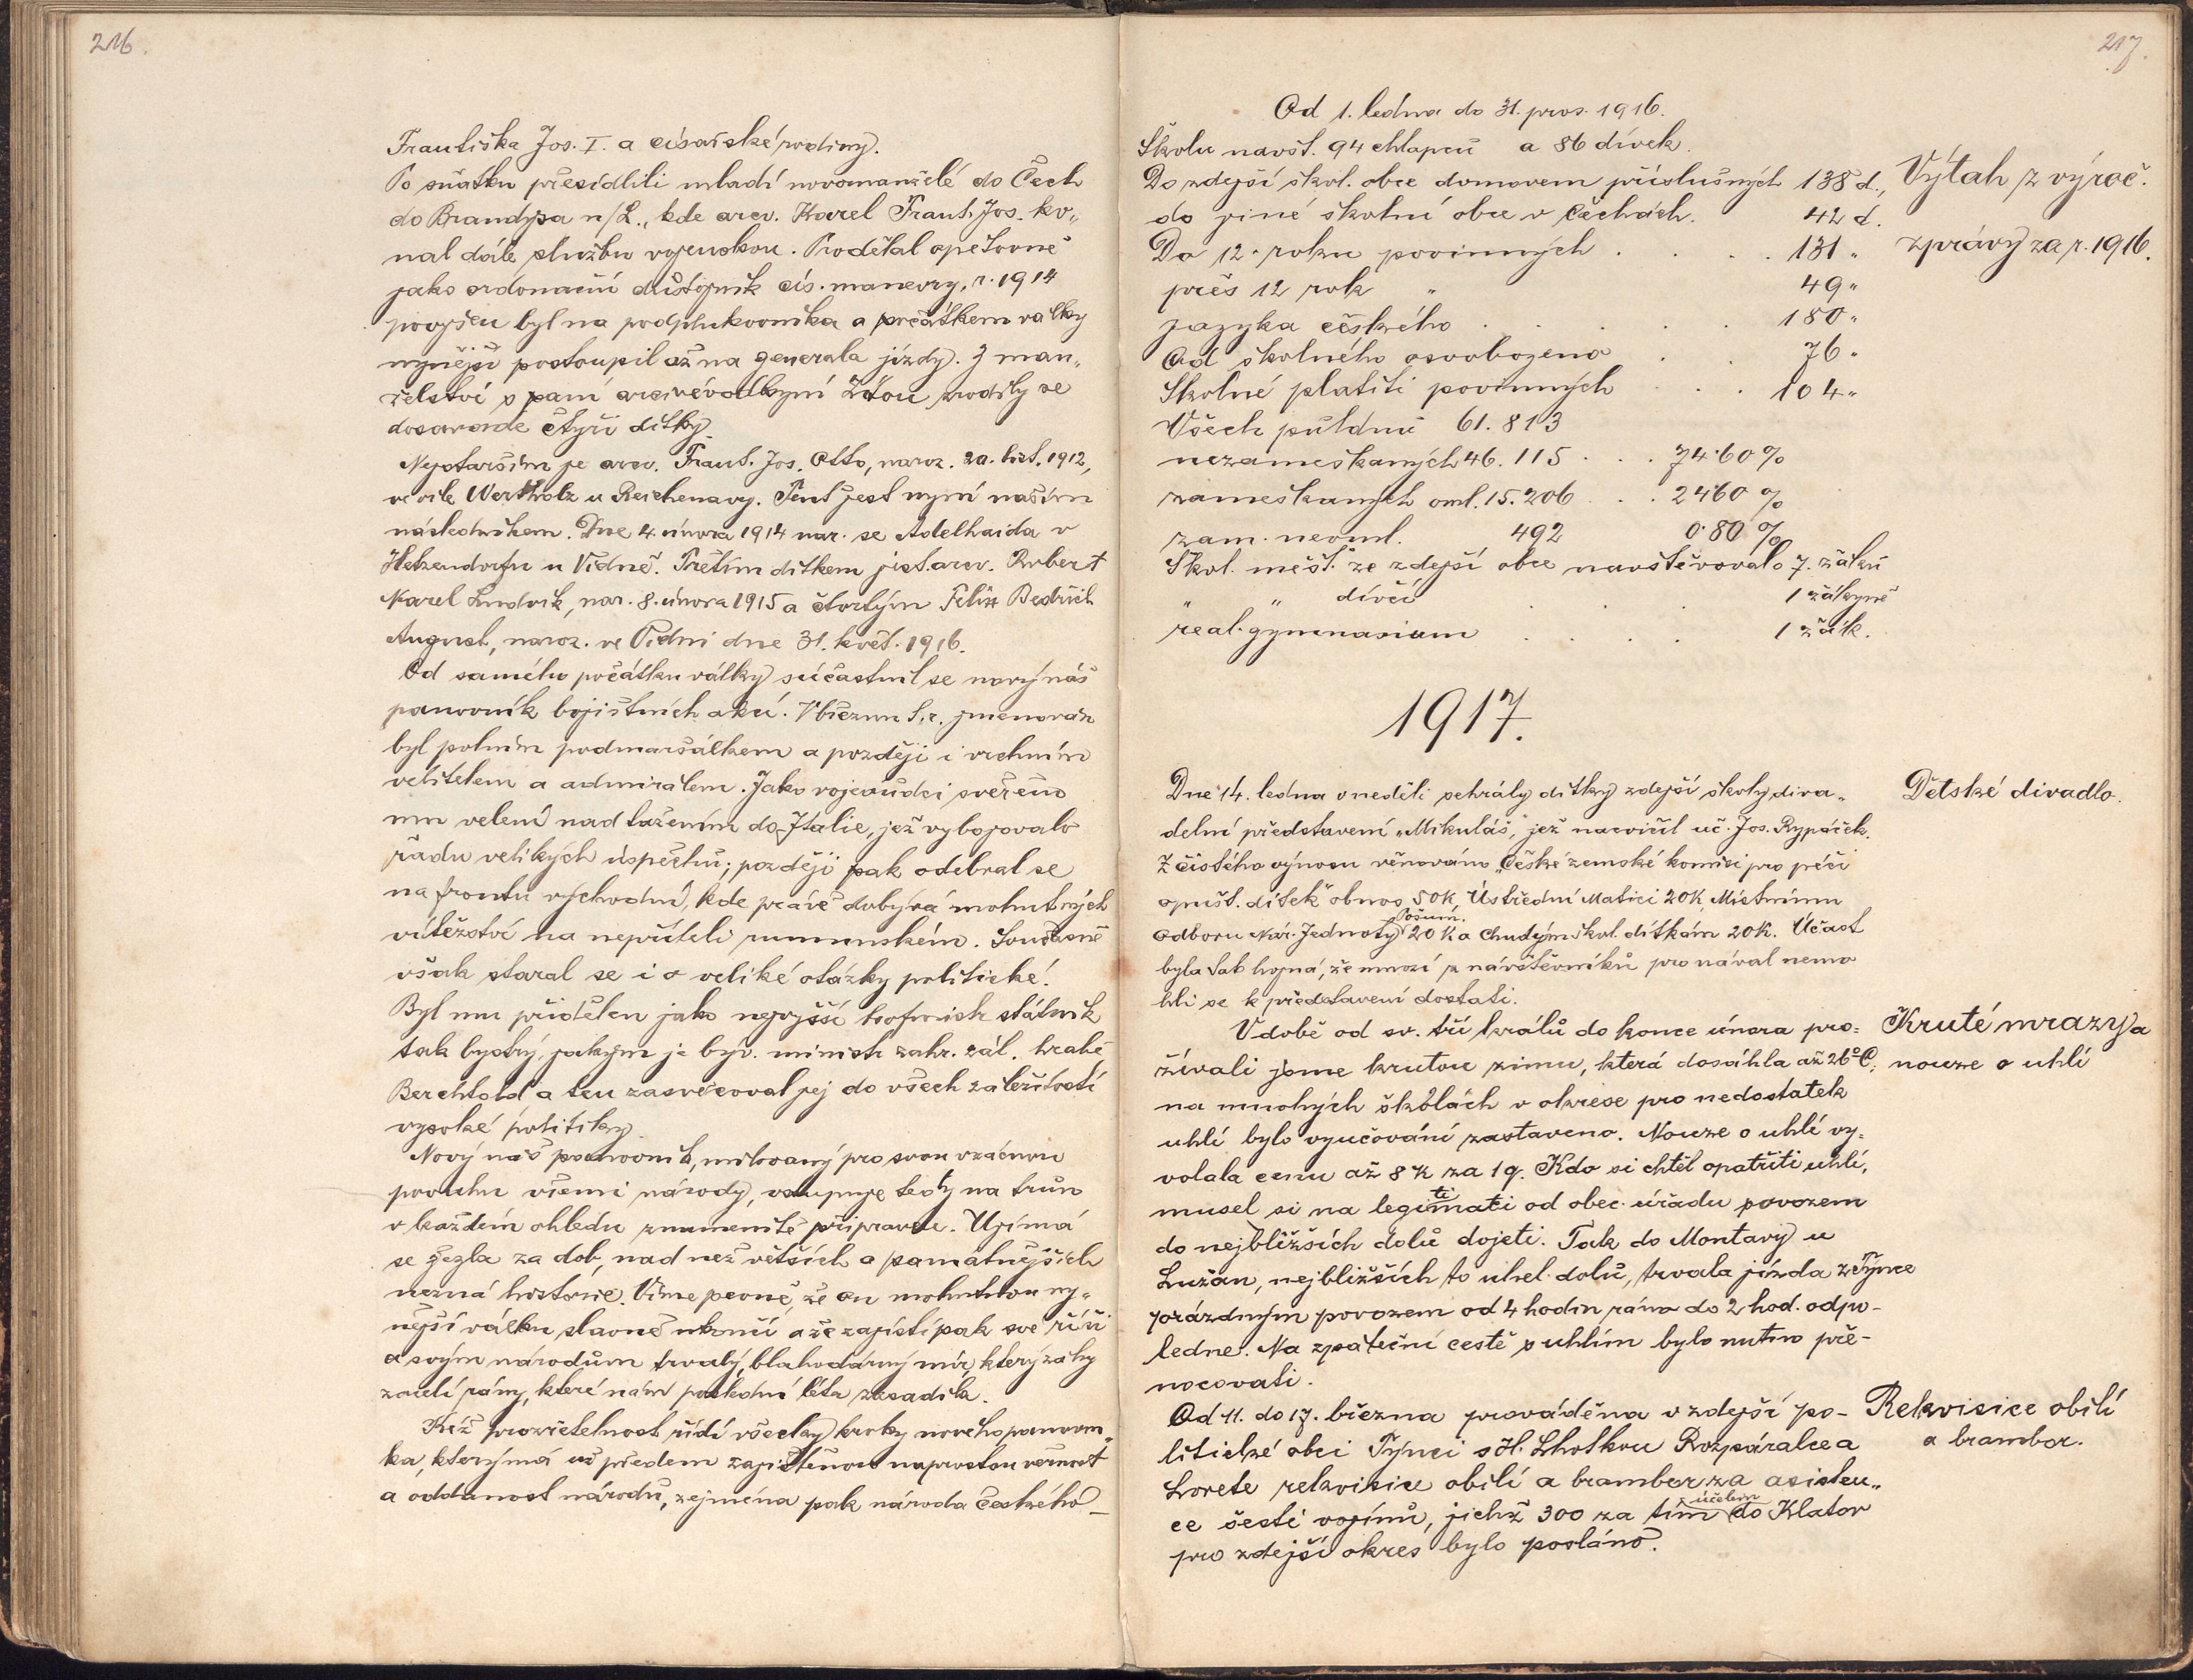 216.
Františka Jos. I. a císařské rodiny.
Po sňatku přesídlili mladí novomanželé do Čech
do Brandýsa n/L., kde arcv. Karel Frant. Jos. ko„
nal dále službu vojenskou. Prodělal opětovně
jako ordonanční důstojník cís. manevry, r. 1914
povýšen byl na podplukovníka a počátkem války
nynější postoupil až na generala jízdy. Z man„
želství s paní arcivévodkyní Zitou zrodily se
dosavade čtyři dítky.
Nejstarším je arcv. Frant. Jos. Otto, naroz. 20. list. 1912,
ve vile Wertholz u Reichenavy. Tent jest nyní naším
následníkem. Dne 4. února 1914 nar. se Adelhaida v
Hetzendorfu u Vídně. Třetím dítkem jest arcv. Robert
Karel Ludvík, nar. 8. února 1915 a čtvrtým Felix Bedřich
August, naroz. ve Vídni dne 31. květ. 1916.
Od samého počátku války súčastnil se nový náš
panovník bojištních akcí. V březnu t. r. jmenován
byl polním podmaršálkem a později i vrchním
velitelem a admirálem. Jako vojevůdci svěřeno
mu velení nad tažením do Italie, jež vybojovalo
řadu velikých úspěchů; později pak odebral se
na frontu východní, kde právě dobývá mohutných
vítězství na nepříteli rumunském. Současně
však staral se i o veliké otázky politické.
Byl mu přidělen jako nejvyšší hofmistr státník
tak bystrý, jakým je býv. ministr zahr. zál. hrabě
Berchtold a ten zasvěcoval jej do všech záležitostí
vysoké politiky.
Nový náš panovník, milovaný pro svou vzácnou
povahu všemi národy, vstupuje tedy na trůn
v každém ohledu znamenitě připraven. Ujímá
se žezla za dob, nad než větších a památnějších
nezná historie. Víme pevně, že on mohutnou ny„
nější válku slavně ukončí a že zajistí pak své říši
a svým národům trvalý, blahodárný mír, který záhy
zacelí rány, které nám poslední léta zasadila.
Kéž prozřetelnost řídí všecky kroky nového panovní„
ka, kterýmá už předem zajištěnou naprostou věrnost
a oddanost národů, zejména pak národa českého _
217.
Od 1. ledna do 31. pros. 1916.
Školu navšt. 94 chlapců a 86 dívek.
Do zdejší škol. obce domovem příslušných 138 d.,
do jiné školní obce v Čechách. 42 d.
Výtah z výroč.
zprávy za r. 1916.
Do 12. roku povinných . . . . 131 „
přes 12 rok „ 49 „
jazyka českého . . . . . 180 „
Od školného osvobozeno . . 76 „
Školné platiti povinných . . . 104 „
Všech půldnů 61.813
nezameškaných 46.115 . . . 74·60 %
zameškaných oml. 15.206 . . 24·60 %
zam. neoml. 492 0·80 %
Škol. měšť. ze zdejší obce navštěvovalo 7. žáků
„ „ dívčí . . . . 1 žákyně
real. gymnasium . . . . 1 žák.
1917.
Dne 14. ledna v neděli sehrály dítky zdejší školy diva„
Dětské divadlo.
delní představení „Mikuláš“, jež nacvičil uč. Jos. Rypáček.
Z čistého výnosu věnováno „České zemské komisi pro péči
opušt. dítek“ obnos 50K, Ústřední Matici 20K, Místnímu
odboru Nár. Jednoty Pošum. 20 K a chudým škol. dítkám 20K. Účast
byla tak hojná, že mnozí z návštěvníků pro nával nemo
hli se k představení dostati.
V době od sv. tří králů do konce února pro=
Kruté mrazy a
žívali jsme krutou zimu, která dosáhla až 26° C;
nouze o uhlí
na mnohých školách v okrese pro nedostatek
uhlí bylo vyučování zastaveno. Nouze o uhlí vy=
volala cenu až 8 K za 1 q. Kdo si chtěl opatřiti uhlí,
musel si na legitimati od obec. úřadu povozem
do nejbližších dolů dojeti. Tak do Montavy u
Lužan, nejbližších to uhel. dolů, trvala jízda z Týnce
prázdným povozem od 4 hodin rána do 2 hod. odpo-
ledne. Na zpáteční cestě s uhlím bylo nutno pře-
nocovati.
Od 11. do 17. března prováděna v zdejší po-
Rekvisice obilí
litické obci Týnci s H. Lhotkou Rozpáralce a
a brambor.
Loretě rekvisice obilí a brambor za asisten„
ce šesti vojínů, jichž 300 za tím účelem do Klatov
pro zdejší okres bylo posláno.